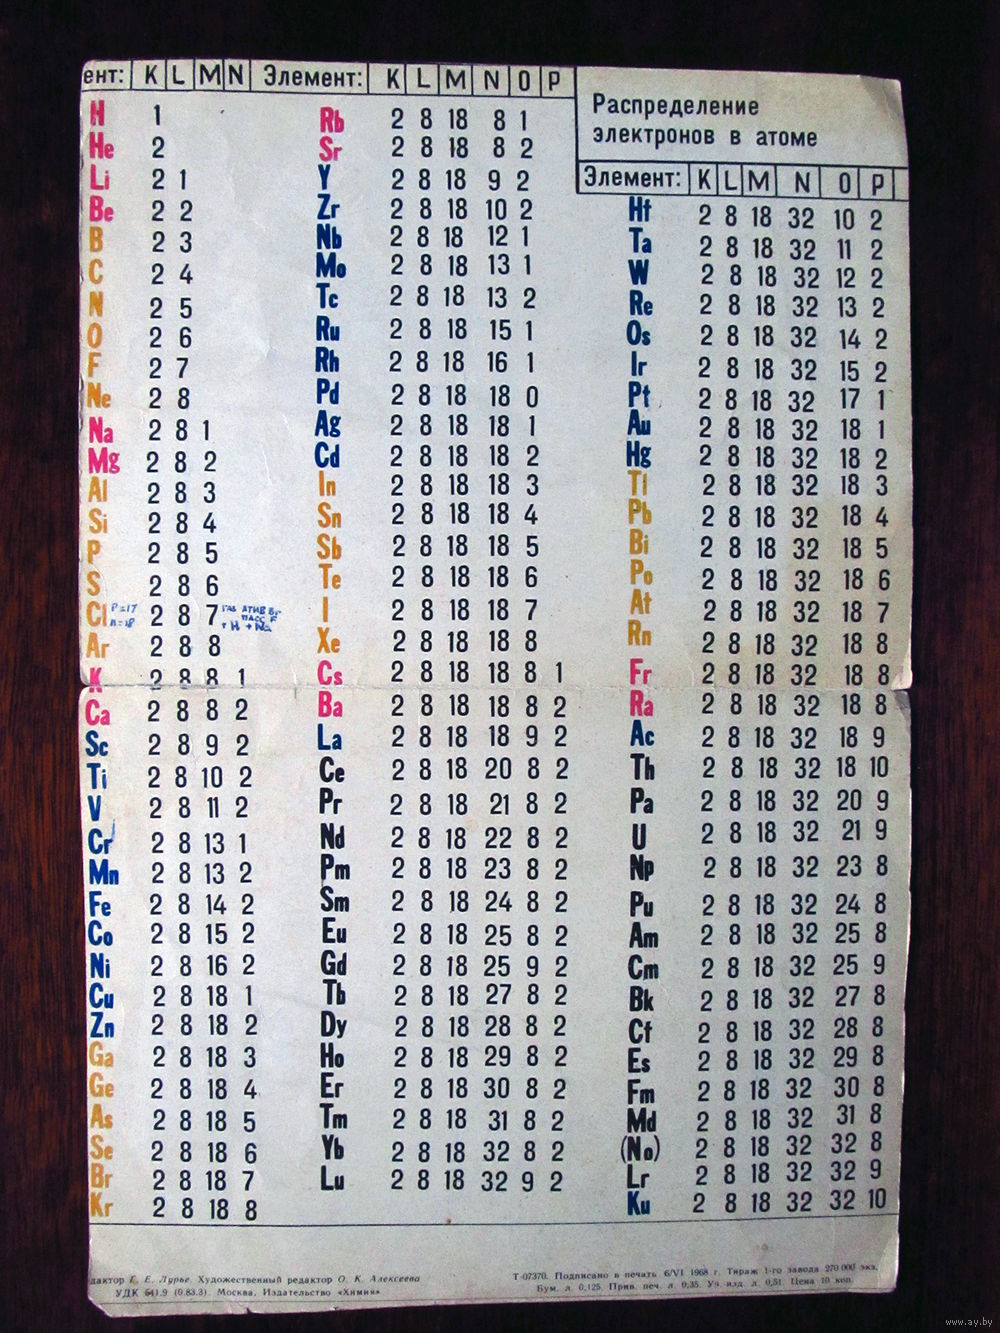 ент: K L M N
H 1
He 2
Li 2 1
Be 2 2
B 2 3
C 2 4
N 2 5
O 2 6
F 2 7
Ne 2 8
Na 2 8 1
Mg 2 8 2
Al 2 8 3
Si 2 8 4
P 2 8 5
S 2 8 6
Cl P=17 2 8 7
n=18 + H + Na
Ar 2 8 8
K 2 8 8 1
Ca 2 8 8 2
Sc 2 8 9 2
Ti 2 8 10 2
V 2 8 11 2
Cr 2 8 13 1
Mn 2 8 13 2
Fe 2 8 14 2
Co 2 8 15 2
Ni 2 8 16 2
Cu 2 8 18 1
Zn 2 8 18 2
Ga 2 8 18 3
Ge 2 8 18 4
As 2 8 18 5
Se 2 8 18 6
Br 2 8 18 7
Kr 2 8 18 8
Элемент: K L M N O P
Rb 2 8 18 8 1
Sr 2 8 18 8 2
Y 2 8 18 9 2
Zr 2 8 18 10 2
Nb 2 8 18 12 1
Mo 2 8 18 13 1
Tc 2 8 18 13 2
Ru 2 8 18 15 1
Rh 2 8 18 16 1
Pd 2 8 18 18 0
Ag 2 8 18 18 1
Cd 2 8 18 18 2
In 2 8 18 18 3
Sn 2 8 18 18 4
Sb 2 8 18 18 5
Te 2 8 18 18 6
I 2 8 18 18 7
Xe 2 8 18 18 8
Cs 2 8 18 18 8 1
Ba 2 8 18 18 8 2
La 2 8 18 18 9 2
Ce 2 8 18 20 8 2
Pr 2 8 18 21 8 2
Nd 2 8 18 22 8 2
Pm 2 8 18 23 8 2
Sm 2 8 18 24 8 2
Eu 2 8 18 25 8 2
Gd 2 8 18 25 9 2
Tb 2 8 18 27 8 2
Dy 2 8 18 28 8 2
Ho 2 8 18 29 8 2
Er 2 8 18 30 8 2
Tm 2 8 18 31 8 2
Yb 2 8 18 32 8 2
Lu 2 8 18 32 9 2
Распределение
электронов в атоме
Элемент: K L M N O P
Hf 2 8 18 32 10 2
Ta 2 8 18 32 11 2
W 2 8 18 32 12 2
Re 2 8 18 32 13 2
Os 2 8 18 32 14 2
Ir 2 8 18 32 15 2
Pt 2 8 18 32 17 1
Au 2 8 18 32 18 1
Hg 2 8 18 32 18 2
Tl 2 8 18 32 18 3
Pb 2 8 18 32 18 4
Bi 2 8 18 32 18 5
Po 2 8 18 32 18 6
At 2 8 18 32 18 7
Rn 2 8 18 32 18 8
Fr 2 8 18 32 18 8
Ra 2 8 18 32 18 8
Ac 2 8 18 32 18 9
Th 2 8 18 32 18 10
Pa 2 8 18 32 20 9
U 2 8 18 32 21 9
Np 2 8 18 32 23 8
Pu 2 8 18 32 24 8
Am 2 8 18 32 25 8
Cm 2 8 18 32 25 9
Bk 2 8 18 32 27 8
Cf 2 8 18 32 28 8
Es 2 8 18 32 29 8
Fm 2 8 18 32 30 8
Md 2 8 18 32 31 8
(No) 2 8 18 32 32 8
Lr 2 8 18 32 32 9
Ku 2 8 18 32 32 10
дактор Г. Е. Лурье. Художественный редактор О. К. Алексеева
УДК 541.9 (0.83.3). Москва. Издательство «Химия»
Т-07370. Подписано в печать 6/VI 1968 г. Тираж 1-го завода 270 000 экз.
Бум. л. 0,125. Прив. печ. л. 0,35. Уч.-изд. л. 0,51. Цена 10 коп.
www.ay.by